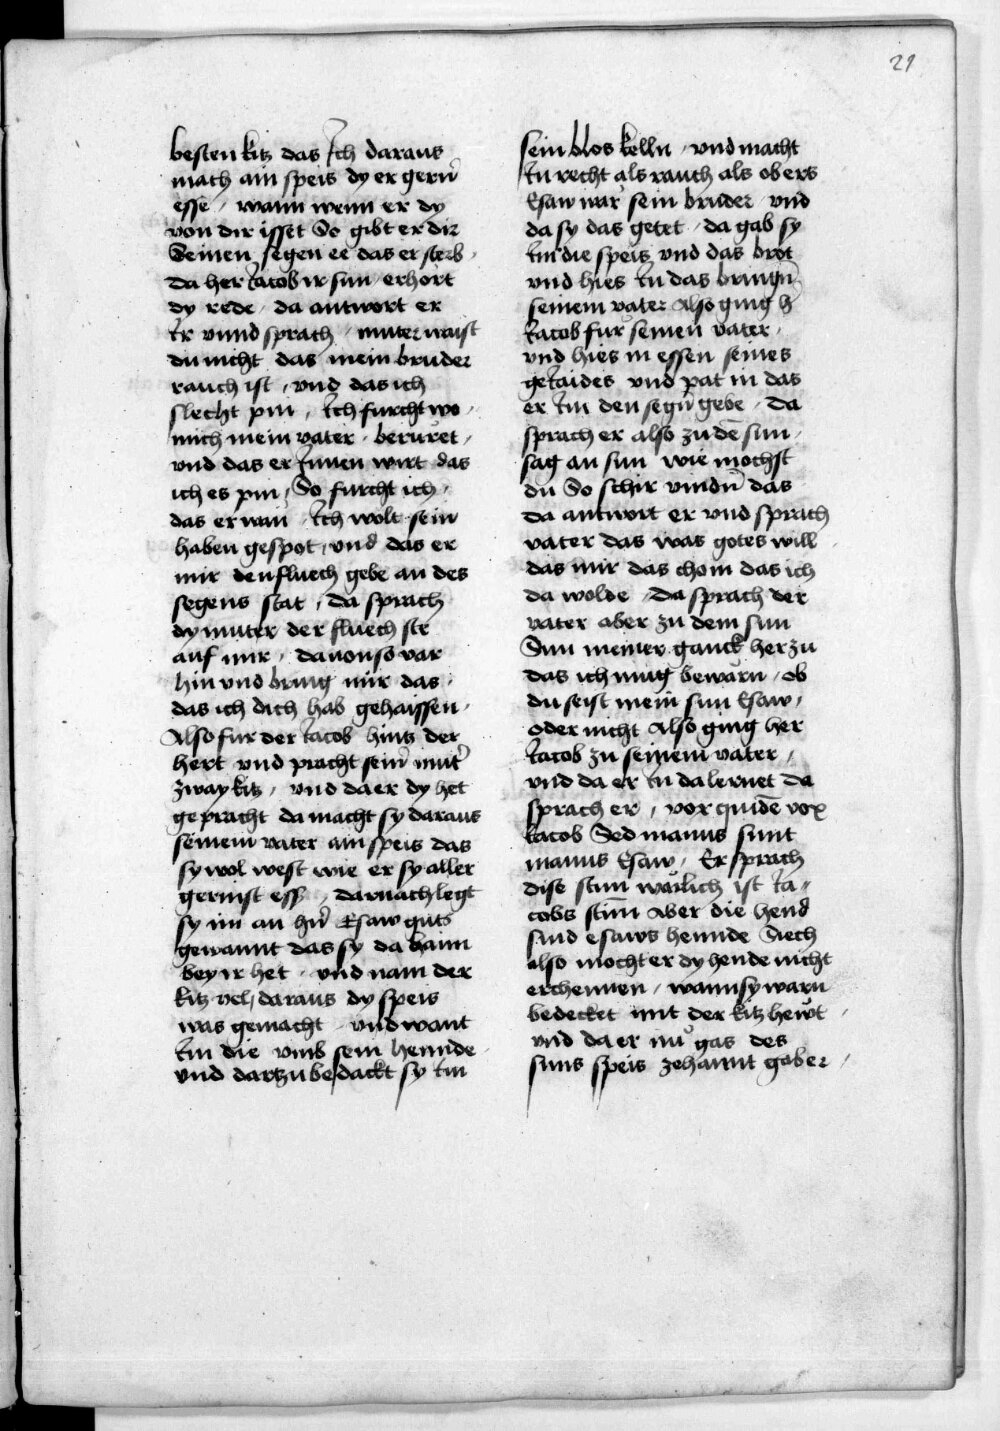 21
besten kitz das Ich daraus
mach ain speis dy er gern̄
esse / wann wenn er dy
von dir isset So gibt er dir
Seinen segen ee das er sterb /
da her Jacob ir sun erhort
dy rede / da antwort er
Ir vnnd sprach / muter waist
du nicht das mein bruder
rauch ist / vnd das ich
slecht pin / Ich furcht wo /
mich mein vater / beruret /
vnd das er Innen wirt das
ich es pin / So furcht ich /
das er wān Ich wolt sein
haben gespot / vnd das er
mir den fluech gebe an des
segens stat / da sprach
dy muter der fluech sie
auf mir / dauon so var
hin vnd bring mir das /
das ich dich hab gehaissen /
Also fur der Jacob hintz der
hert vnd pracht sein̄ mut̄
zway kitz / vnd da er dy het
gepracht da macht sy daraus
seinem vater ain speis das
sy wol west wie er sy aller
gernist ess / darnach legt
sy im an hn̄ Esaw guts
gewannt das sy da haim
bey ir het / vnd nam der
kitz vel / daraus dy speis
was gemacht / vnd want
Im die vmb sein hennde
vnd dartzu bedackt sy Im
sein blos kelln / vnd macht
In recht als rauch als ob ers
Esaw wār sein bruder / vnd
da sy das getet / da gab sy
Im die speis vnd das brot
vnd hies In das bringn̄
seinem vater Also ging h̄
Jacob fur seinen vater /
vnd hies in essen seines
geIaides vnd pat in das
er Im den segn̄ gebe / da
sprach er also zu dē sun /
sag an sun wie mochst
du So schir vindn̄ das
da antwort er vnd sprach
vater das was gotes will
das mir das chom das ich
da wolde / da sprach der
vater aber zu dem sun
Sun meiner ganck herzu
das ich mug bewārn / ob
du seist mein sun Esaw /
oder nicht Also ging her
Jacob zu seinem vater /
vnd da er In da lernet da
sprach er / vox quidē vox
Iacob Sed manus sunt
manus Esaw / Er sprach
dise stim warlich ist Ia /
cobs stim̄ Aber die hend
sind esaws hennde Siech
also mocht er dy hende nicht
erchennen / wann sy warn
bedecket mit der kitz hewt /
vnd da er nu gas des
suns speis zehannt gab er /